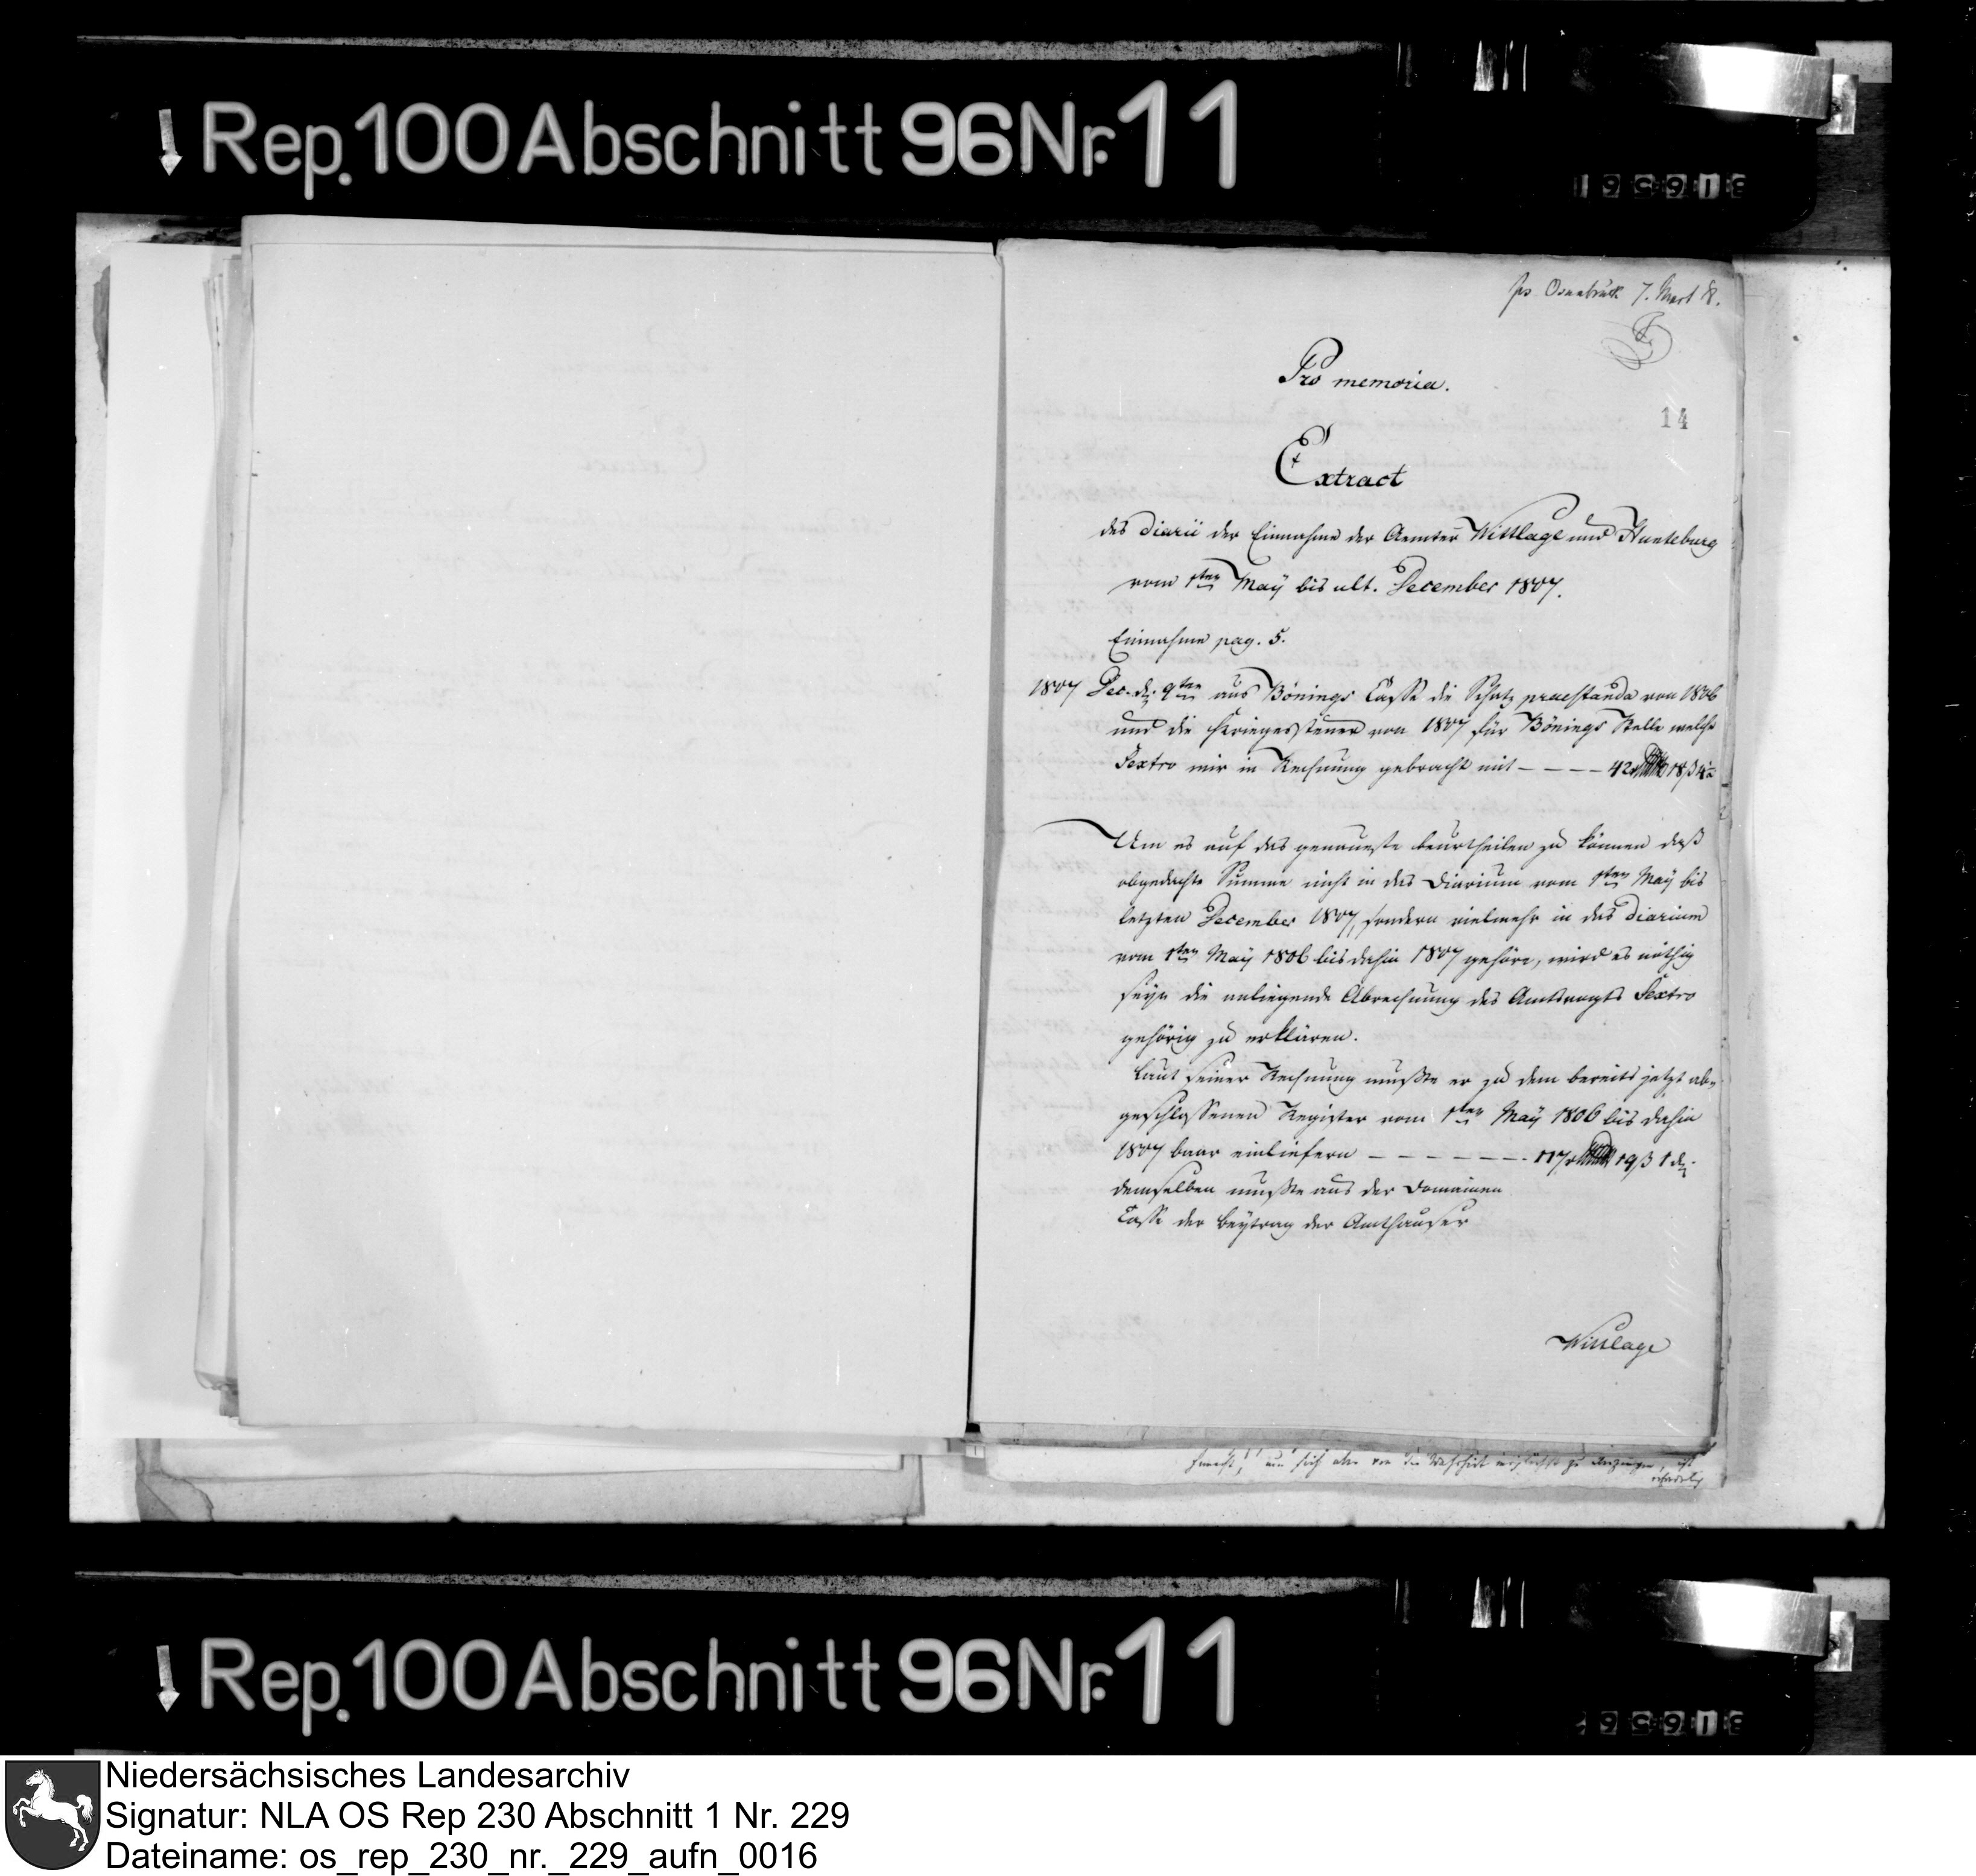 Rep. 100 Abschnitt 96 Nr. 11
Osnabrück 7. Mart 8.
Pro memoria.
14
Extract
des Diarii der Einnahme der Aemter Wittlage und Hunteburg
vom 1ten Maÿ bis ult. December 1807.
Einnahme pag. 5.
1807 Dec. d. 9ten aus Bönings Casse die Schatz praestanda von 1806
und die Kriegessteuer von 1807 für Bönings Stelle welche
Sextro mir in Rechnung gebracht mit - - - - 42 18 ß 4
Um es auf das genaueste beurtheilen zu können daß
obgedachte Summe nicht in das Diarium vom 1ten Maÿ bis
letzten December 1807, sondern vielmehr in das Diarium
vom 1ten Maÿ 1806 bis dahin 1807 gehöre, wird es nöthig
seÿn die anliegende Abrechnung des Amtsvogts Sextro
gehörig zu erklären.
Laut seiner Rechnung mußte er zu dem bereits jetzt ab-
geschlossenen Register vom 1ten Maÿ 1806 bis dahin
1807 baar einliefern - - - - - - - 117 19 ß 1 d.
demselben mußte aus der Domainen
Casse der Beÿtrag der Amthauser
Wittlage
um sich aber von der Wahrheit zu
Rep. 100 Abschnitt 96 Nr. 11
Niedersächsisches Landesarchiv
Signatur: NLA OS Rep 230 Abschnitt 1 Nr. 229
Dateiname: os_rep_230_nr._229_aufn_0016